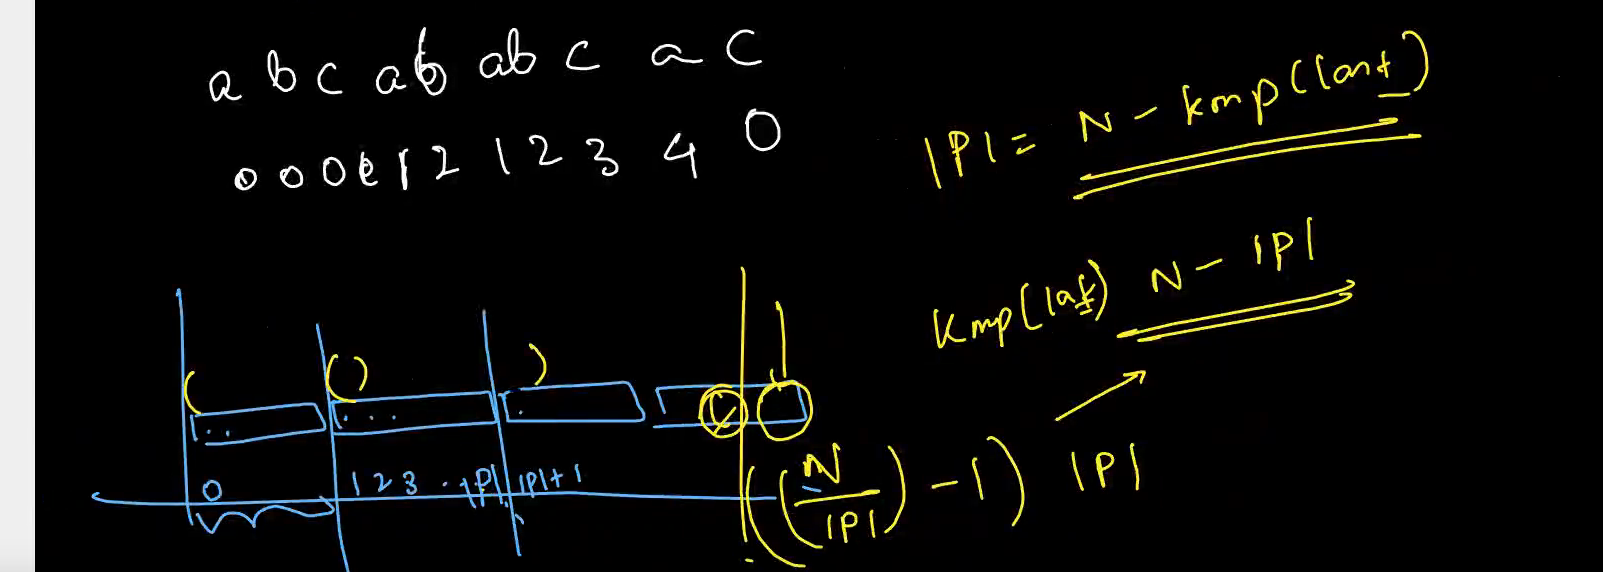 a b c ab ab c a c
0 0 0 1 2 1 2 3 4 0
|P| = N - kmp(last)
Kmp(last) N - |P|
0 1 2 3 . . |P| |P|+1
((N/|P|) - 1) |P|